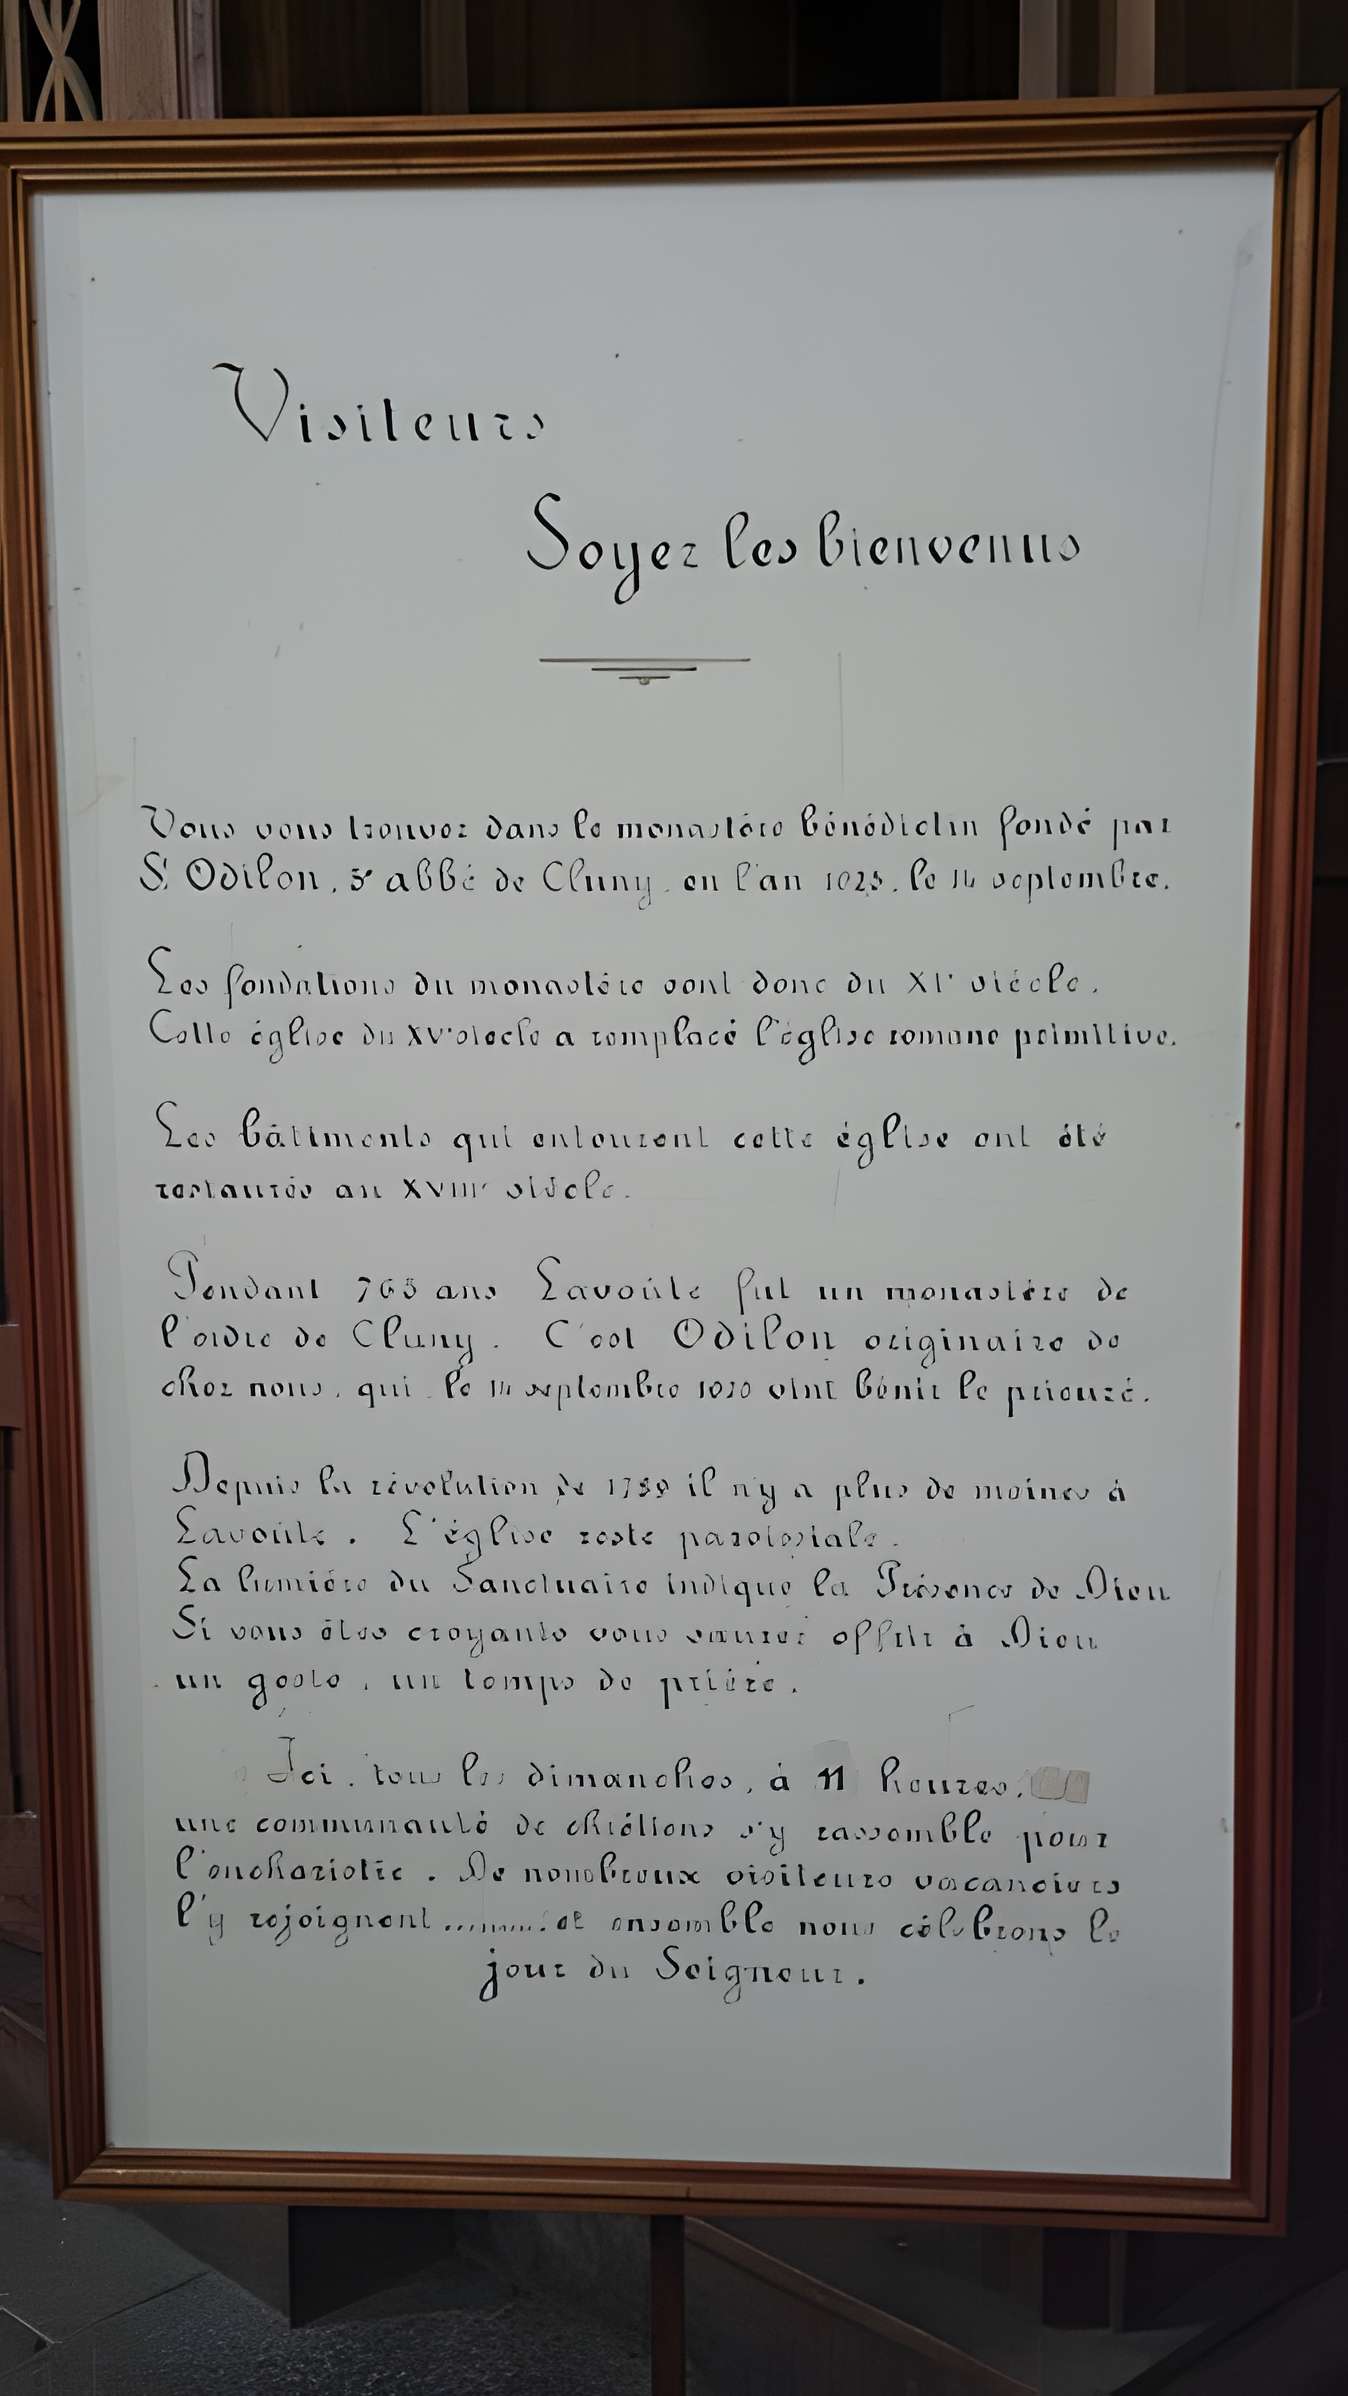 Visiteurs
Soyez les bienvenus
Vous vous trouvez dans le monastère bénédictin fondé par
St Odilon, 5e abbé de Cluny, en l'an 1025, le 14 septembre.
Les fondations du monastère sont donc du XIe siècle.
Cette église du XVe siècle a remplacé l'église romane primitive.
Les bâtiments qui entourent cette église ont été
restaurés au XVIIIe siècle.
Pendant 765 ans Lavoûte fut un monastère de
l'ordre de Cluny. C'est Odilon originaire de
chez nous, qui le 14 septembre vint bénir le prieuré.
Depuis la révolution de 1789 il n'y a plus de moines à
Lavoûte. L'église reste paroissiale.
La lumière du Sanctuaire indique la Présence de Dieu
Si vous êtes croyants vous saurez offrir à Dieu
un geste, un temps de prière.
Ici, tous les dimanches, à 11 heures,
une communauté de chrétiens s'y rassemble pour
l'eucharistie. De nombreux visiteurs vacanciers
l'y rejoignent ......... et ensemble nous célébrons le
jour du Seigneur.